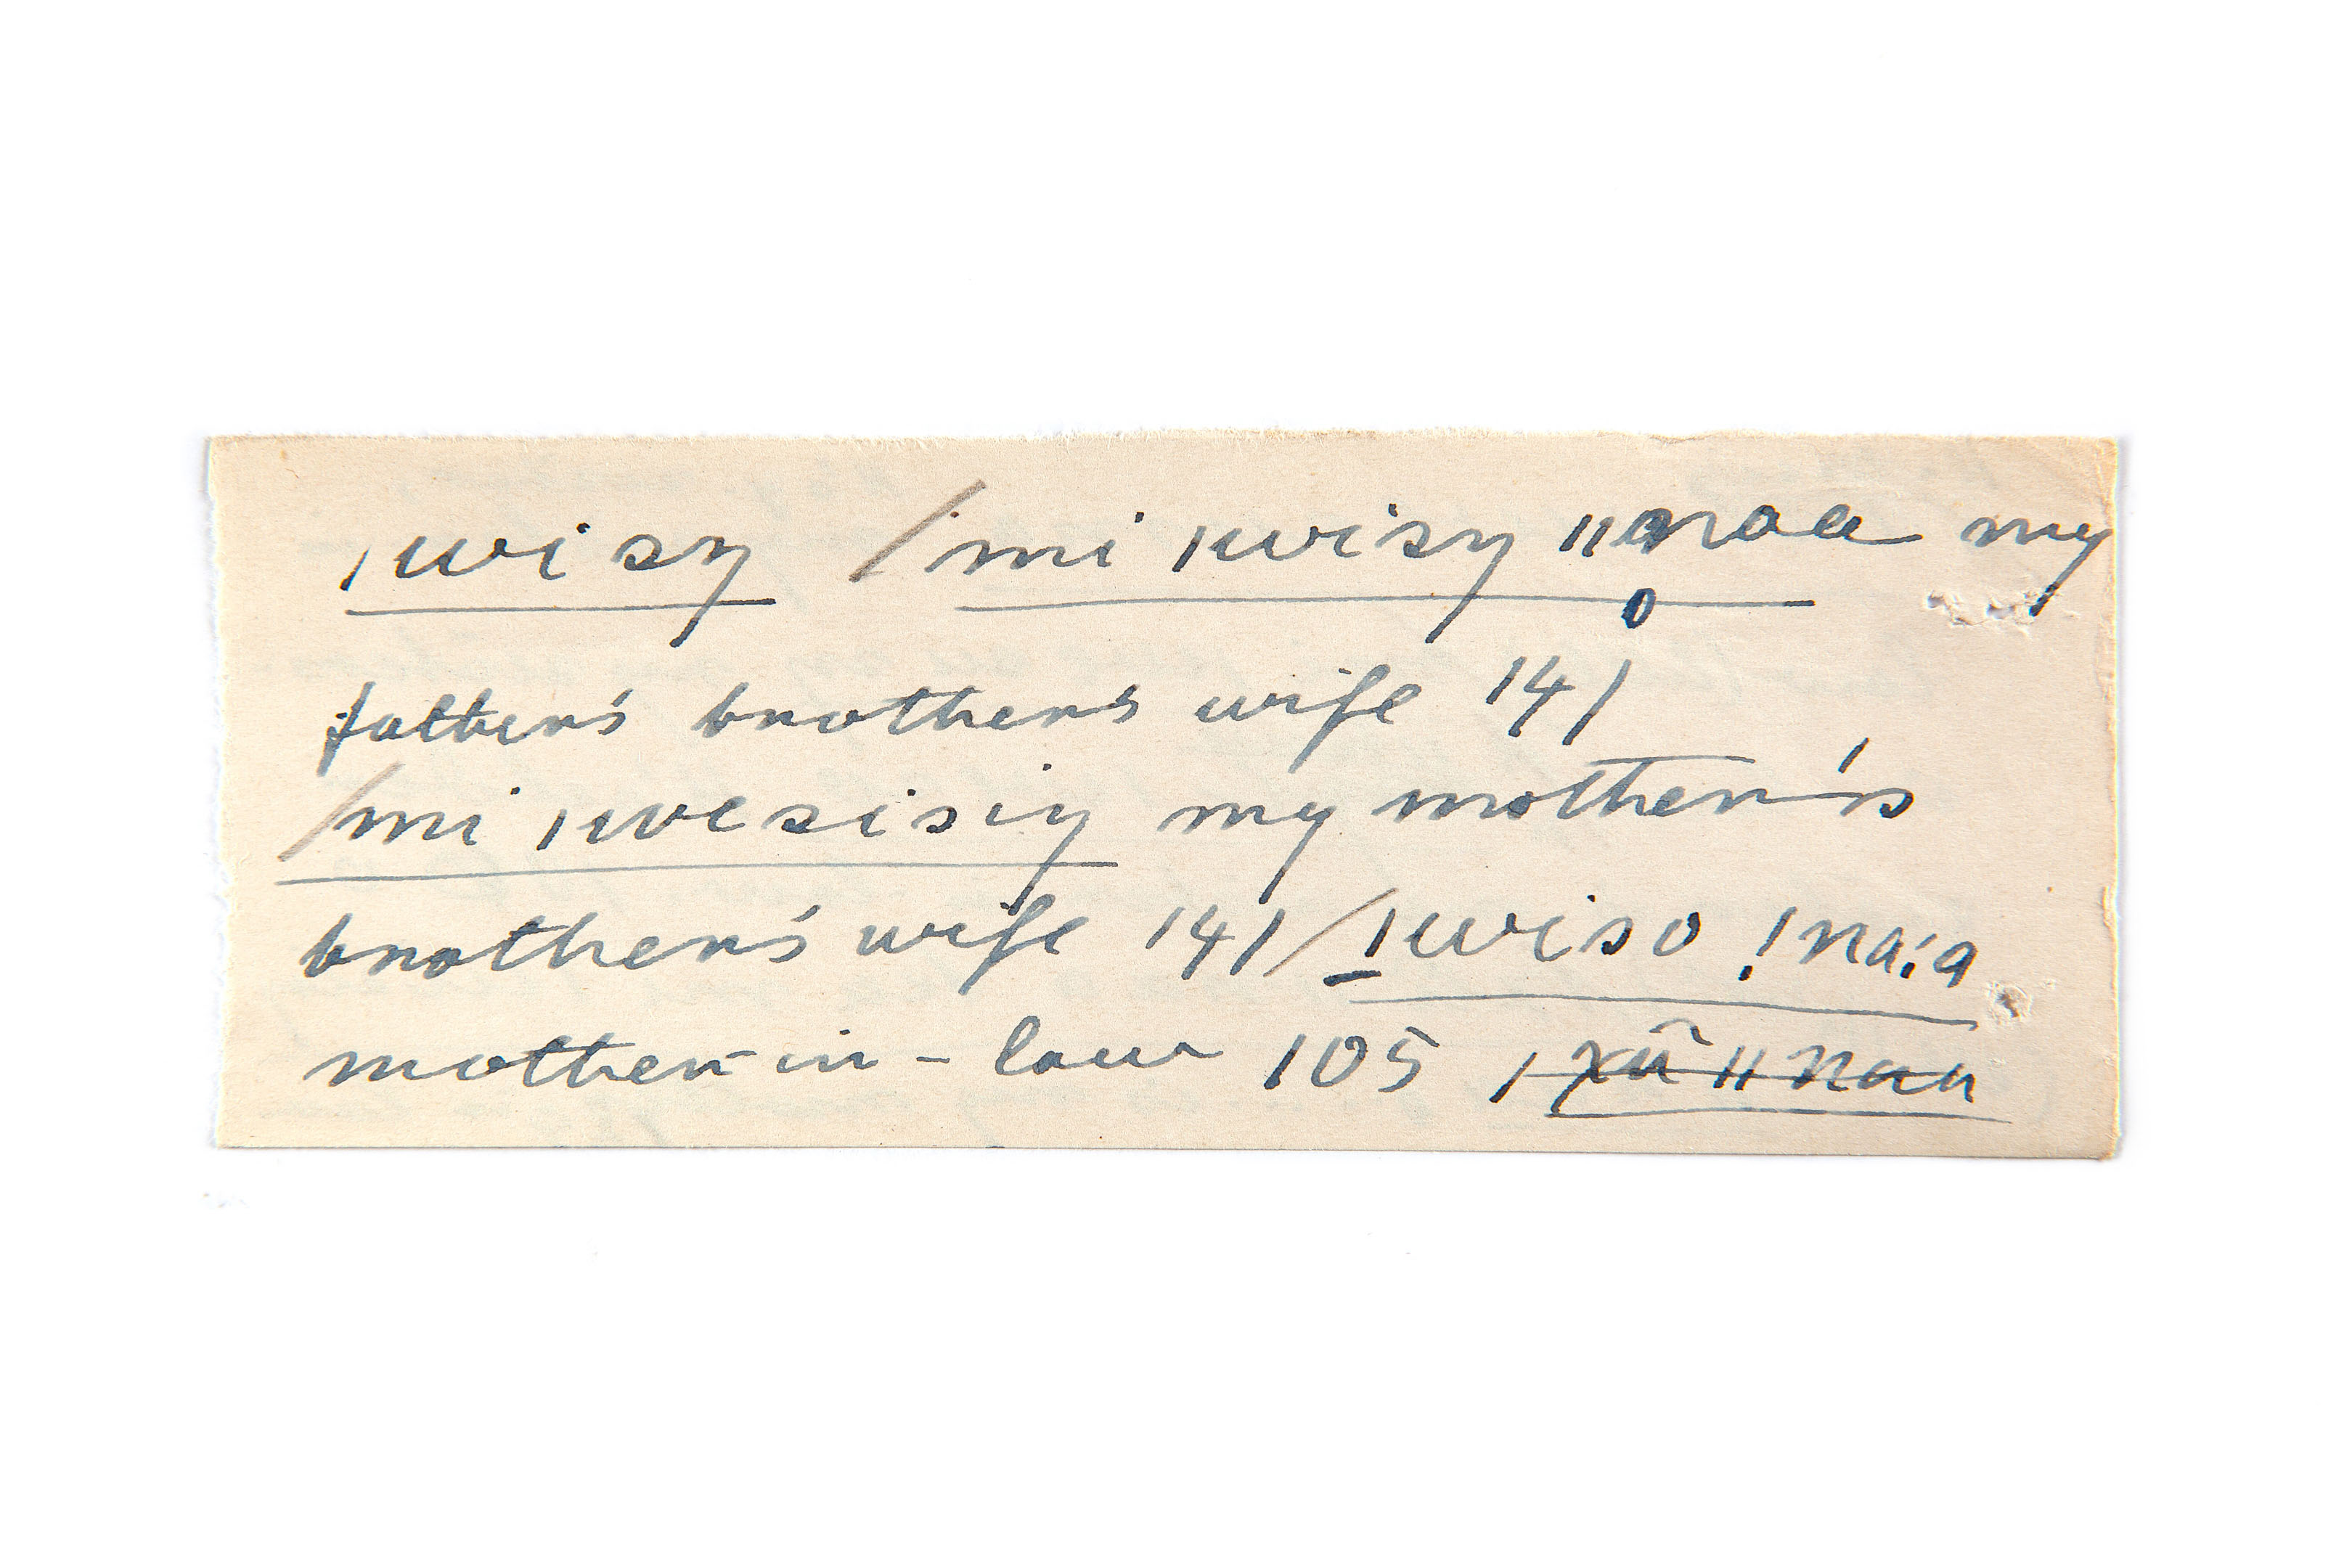 ǀuisŋ /mi ǀuisŋ ǁa̭roa my
father's brother's wife 141
/mi ǀuesisiŋ my mother's
brother's wife 141 / ǀuiso !na:a
mother-in-law 105 ǀxũ ǁnau